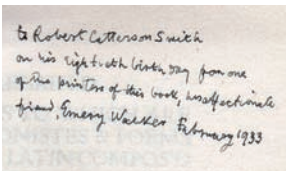 to Robert Catterson Smith
on his eightieth birthday from one
of the printers of this book, his affectionate
friend, Emery Walker February 1933